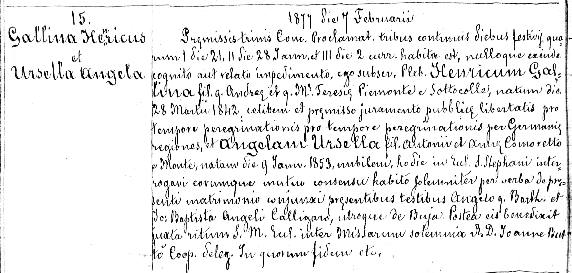 15.
Gallina Henricus
et
Ursella Angela
1877 die 7 Februarii
Præmissis trinis Conc. Proclamat. tribus continuis diebus festivis quo
rum I die 21, II die 28 Jann. et III die 2 curr. habita est, nulloque exinde
cognito aut relato impedimento, ego subscr. Pleb. Henricum Gal-
lina fil. q. Andreæ et q. Mæ. Teresiæ Piemonte e Sottocolle, natum die
28 Martii 1842, cœlibem et præmisso juramento publicæ libertatis pro
tempore peregrinationis pro tempore peregrinationis per Germaniæ
regiones, et Angelam Ursella fil. Antonii et Annæ Comoretto
e Monte, natam die 9 Jann. 1853, nubilem, hodie in Eccl. S. Stephani inter-
rogavi eorumque mutuo consensu habito solemniter per verba de præ-
senti matrimonio conjunxi præsentibus testibus Angelo q. Barth. et
Jo: Baptista Angeli Calligaro, utroque de Buja. Postea eis benedixit
juxta ritum S. M. Eccl. inter Missarum solemnia R. D. Joanne
Coop. deleg. In quorum fidem etc.